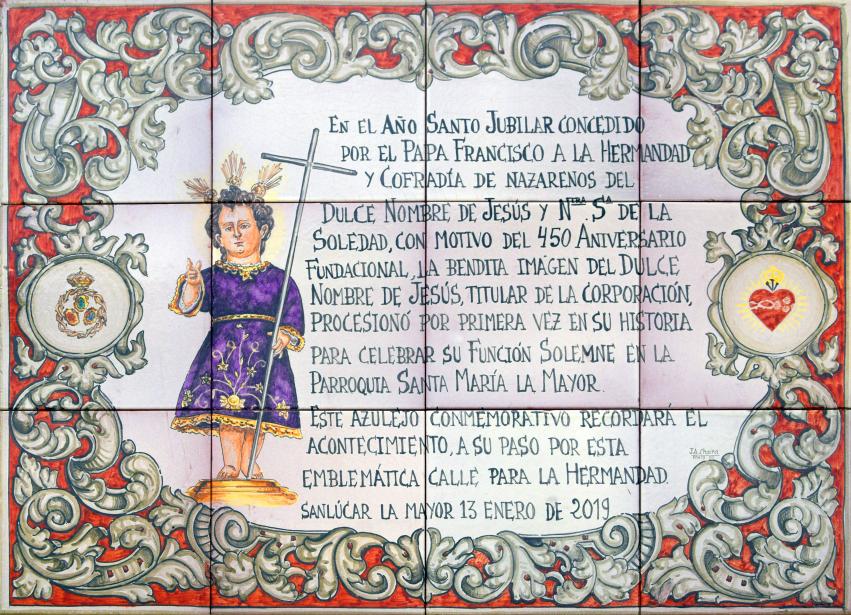 EN EL AÑO SANTO JUBILAR CONCEDIDO
POR EL PAPA FRANCISCO A LA HERMANDAD
Y COFRADÍA DE NAZARENOS DEL
DULCE NOMBRE DE JESÚS Y Nᵀᴿᴬ. Sᴬ DE LA
SOLEDAD, CON MOTIVO DEL 450 ANIVERSARIO
FUNDACIONAL, LA BENDITA IMÁGEN DEL DULCE
NOMBRE DE JESÚS, TITULAR DE LA CORPORACIÓN,
PROCESIONÓ POR PRIMERA VEZ EN SU HISTORIA
PARA CELEBRAR SU FUNCIÓN SOLEMNE EN LA
PARROQUIA SANTA MARÍA LA MAYOR.
ESTE AZULEJO CONMEMORATIVO RECORDARÁ EL
ACONTECIMIENTO, A SU PASO POR ESTA
EMBLEMÁTICA CALLE PARA LA HERMANDAD.
SANLÚCAR LA MAYOR 13 ENERO DE 2019